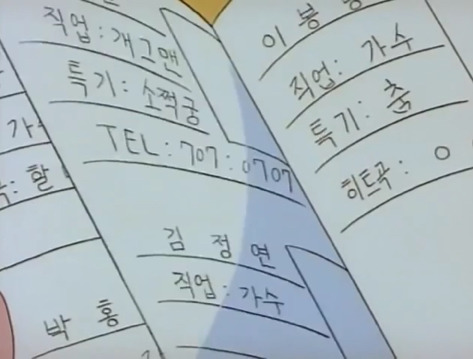 직업: 개그맨
특기: 소쩍궁
TEL: 707: 0707
김 정 연
직업: 가수
이 봉
직업: 가수
특기: 춤
히트곡: O
박 홍